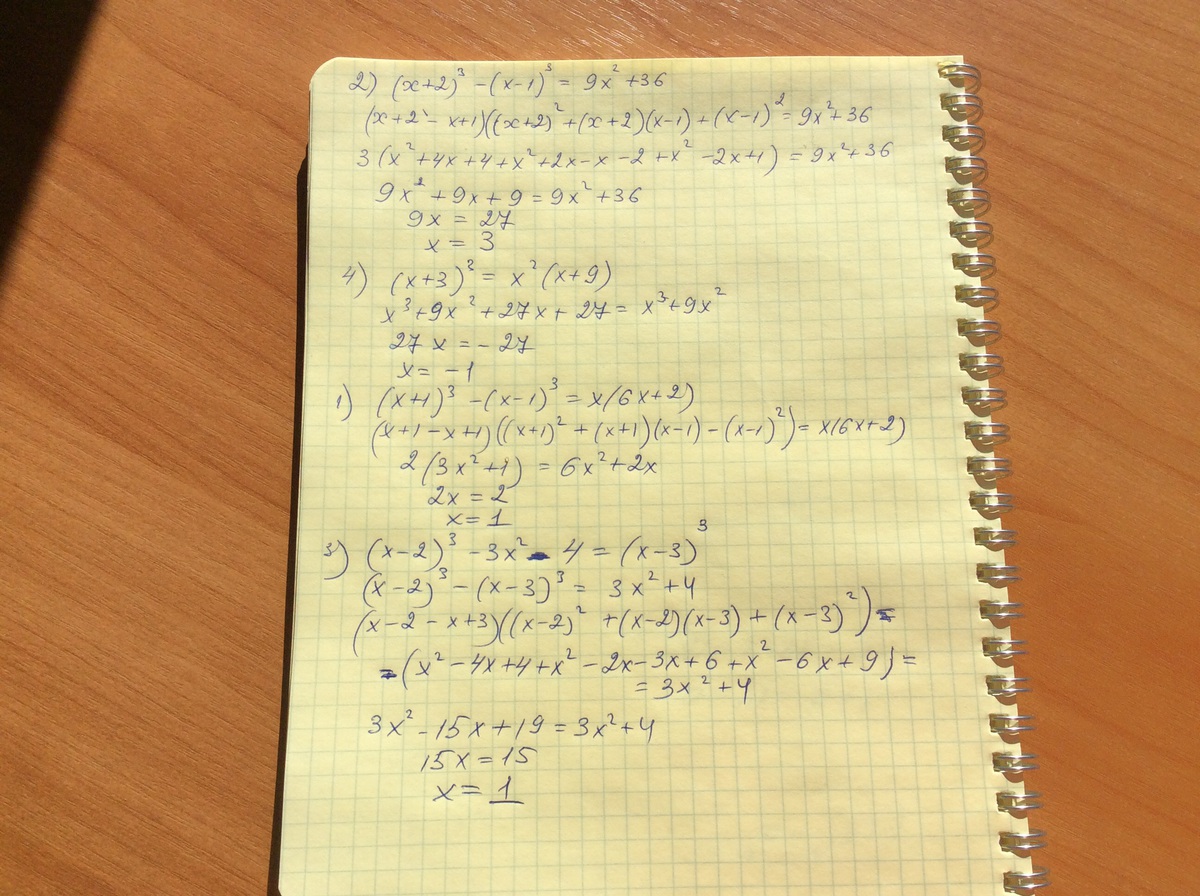 2) (x+2)³ - (x-1)³ = 9x² + 36
(x+2 - x+1)((x+2)² + (x+2)(x-1) + (x-1)² = 9x² + 36
3(x² + 4x + 4 + x² + 2x - x - 2 + x² - 2x + 1) = 9x² + 36
9x² + 9x + 9 = 9x² + 36
9x = 27
x = 3
4) (x+3)³ = x²(x+9)
x³ + 9x² + 27x + 27 = x³ + 9x²
27x = -27
x = -1
1) (x+1)³ - (x-1)³ = x(6x+2)
(x+1 - x+1)((x+1)² + (x+1)(x-1) - (x-1)²) = x(6x+2)
2(3x² + 1) = 6x² + 2x
2x = 2
x = 1
3) (x-2)³ - 3x² - 4 = (x-3)³
(x-2)³ - (x-3)³ = 3x² + 4
(x-2 - x+3)((x-2)² + (x-2)(x-3) + (x-3)²) =
= (x² - 4x + 4 + x² - 2x - 3x + 6 + x² - 6x + 9) =
= 3x² + 4
3x² - 15x + 19 = 3x² + 4
15x = 15
x = 1